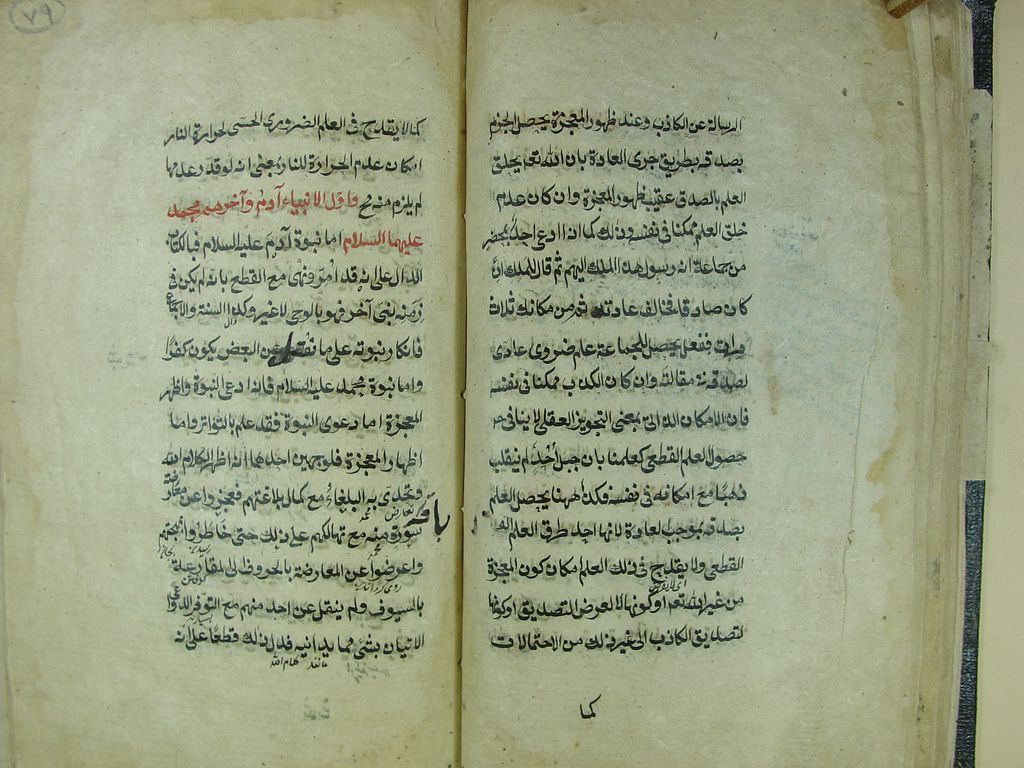 الرسالة عن الكاذب وعند ظهور المعجزة يحصل الجزم
بصدقه بطريق جرى العادة بان الله تعم يخلق
العلم بالصدق عقيب ظهور المعجزة وان كان عدم
خلق العلم ممكنا فى نفسه وذلك كما اذا ادعى احد بمحضر
من جماعة انه رسول هذا الملك اليهم ثم قال للملك ان
كان صادقا فخالف عادتك ثم من مكانك ثلاث
مرات ففعل يحصل للجماعة علم ضرورى عادى
بصدقه فى مقالته وان كان الكذب ممكنا فى نفسه
فان الامكان الذاتى بمعنى التجويز العقلى لا ينافى حصو
حصول العلم القطعى كعلمنا بان جبل أحد لم ينقلب
ذهبا مع امكانه فى نفسه فكذا ههنا يحصل العلم
بصدقه بموجب العادة لانها احد طرق العلم
القطعى ولا يقدح فى ذلك العلم امكان كون المعجزة
من غير الله تعم او كونها لا لغرض التصديق او كونها
لتصديق الكاذب الى غير ذلك من الاحتمالات
كما
٧٩
كما لا يقدح فى العلم الضرورى الحسى لحرارة النار
امكان عدم الحرارة للنار بمعنى انه لو قدر عدمها
لم يلزم منه مح واول الانبياء آدم وآخرهم محمد
عليهما السلام اما نبوة آدم عليه السلام فبالكتاب
الدال على انه قد امر ونهى مع القطع بانه لم يكن فى
زمنه نبى آخر فهو بالوحى لا غير وكذا السنة والاجماع
فانكار نبوته على ما نقل عن البعض يكون كفرا
واما نبوة محمد عليه السلام فلانه ادعى النبوة واظهر
المعجزة اما دعوى النبوة فقد علم بالتواتر واما
اظهار المعجزة فلوجهين احدهما انه اظهر كلام الله
وتحدى به البلغاء مع كمال بلاغتهم فعجزوا عن معارضة
سورة منه مع تهالكهم على ذلك حتى خاطروا بمهجتهم
واعرضوا عن المعارضة بالحروف الى المقارعة
بالسيوف ولم ينقل عن احد منهم مع التوفر الدواعى
الاتيان بشئ مما يدانيه فدل ذلك قطعا على انه
مانند كلام الله